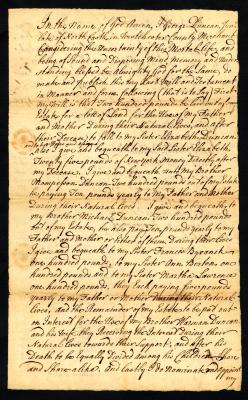 In the Name of God Amen, I George Duncan, Junr
late of North forth in Westchester County Merchant
Considering the Uncertainty of this Mortal Life, and
being of Sound and Disposing Mind Memory and Under-
standing blessed be Almighty God for the Same, Do
make and publish this my last Will and Testament
in Manner and form following (that is to Say) First
my Will is that Two hundred pounds be laid out of my
Estate for a lot of Land for the Use of my Father
and Mother During their Natural Lives, and after
their Decease to fall to my Sister Elizabeth Duncan
also I give and bequeath to my said Sister Elizabeth
Twenty five pounds of New york Money Directly after
my Decease. I give and bequeath unto my Brother
Thompson Duncan Two hundred pounds out of my Estate
he paying Ten pounds yearly to my Father and Mother
During their Natural Lives. I give and bequeath to
my Brother Michael Duncan Two hundred pounds
out of my Estate, he also paying Ten pounds yearly to my
Father and Mother or either of them During their Lives
I give and bequeath to my Sister Frances
one hundred pounds, to my Sister Ann Horton, one
hundred pounds And to my Sister Martha Lawrence
one hundred pounds, they Each paying five pounds
yearly to my Father or Mother During their Natural
Lives, And the Remainder of my Estate to be put out
on Interest for the Use of my Brother Harman Duncan
and his Wife, they Receiving the Interest During their
Natural Lives towards their Support, and after his
Death to be Equally Divided Among his Children Share
and Share alike, And Lastly I do Nominate and appoint
my